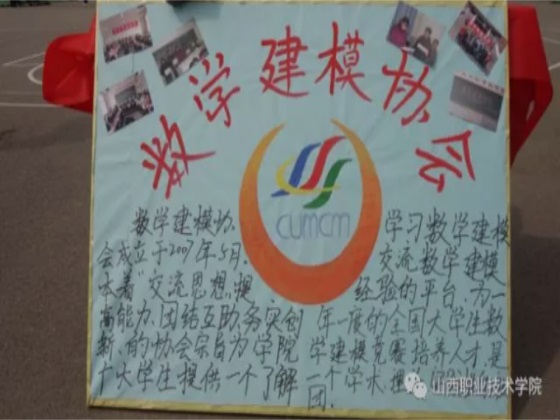 数学建模协会
CUMCM
数学建模协
会成立于2007年5月.
本着“交流思想.提
高能力.团结互助.务实创
新.的协会宗旨为学院
广大学生提供一个了解
学习数学建模
交流数学建模
经验的平台.为一
年一度的全国大学生数
学建模竞赛培养人才是
一个学术
团.
山西职业技术学院